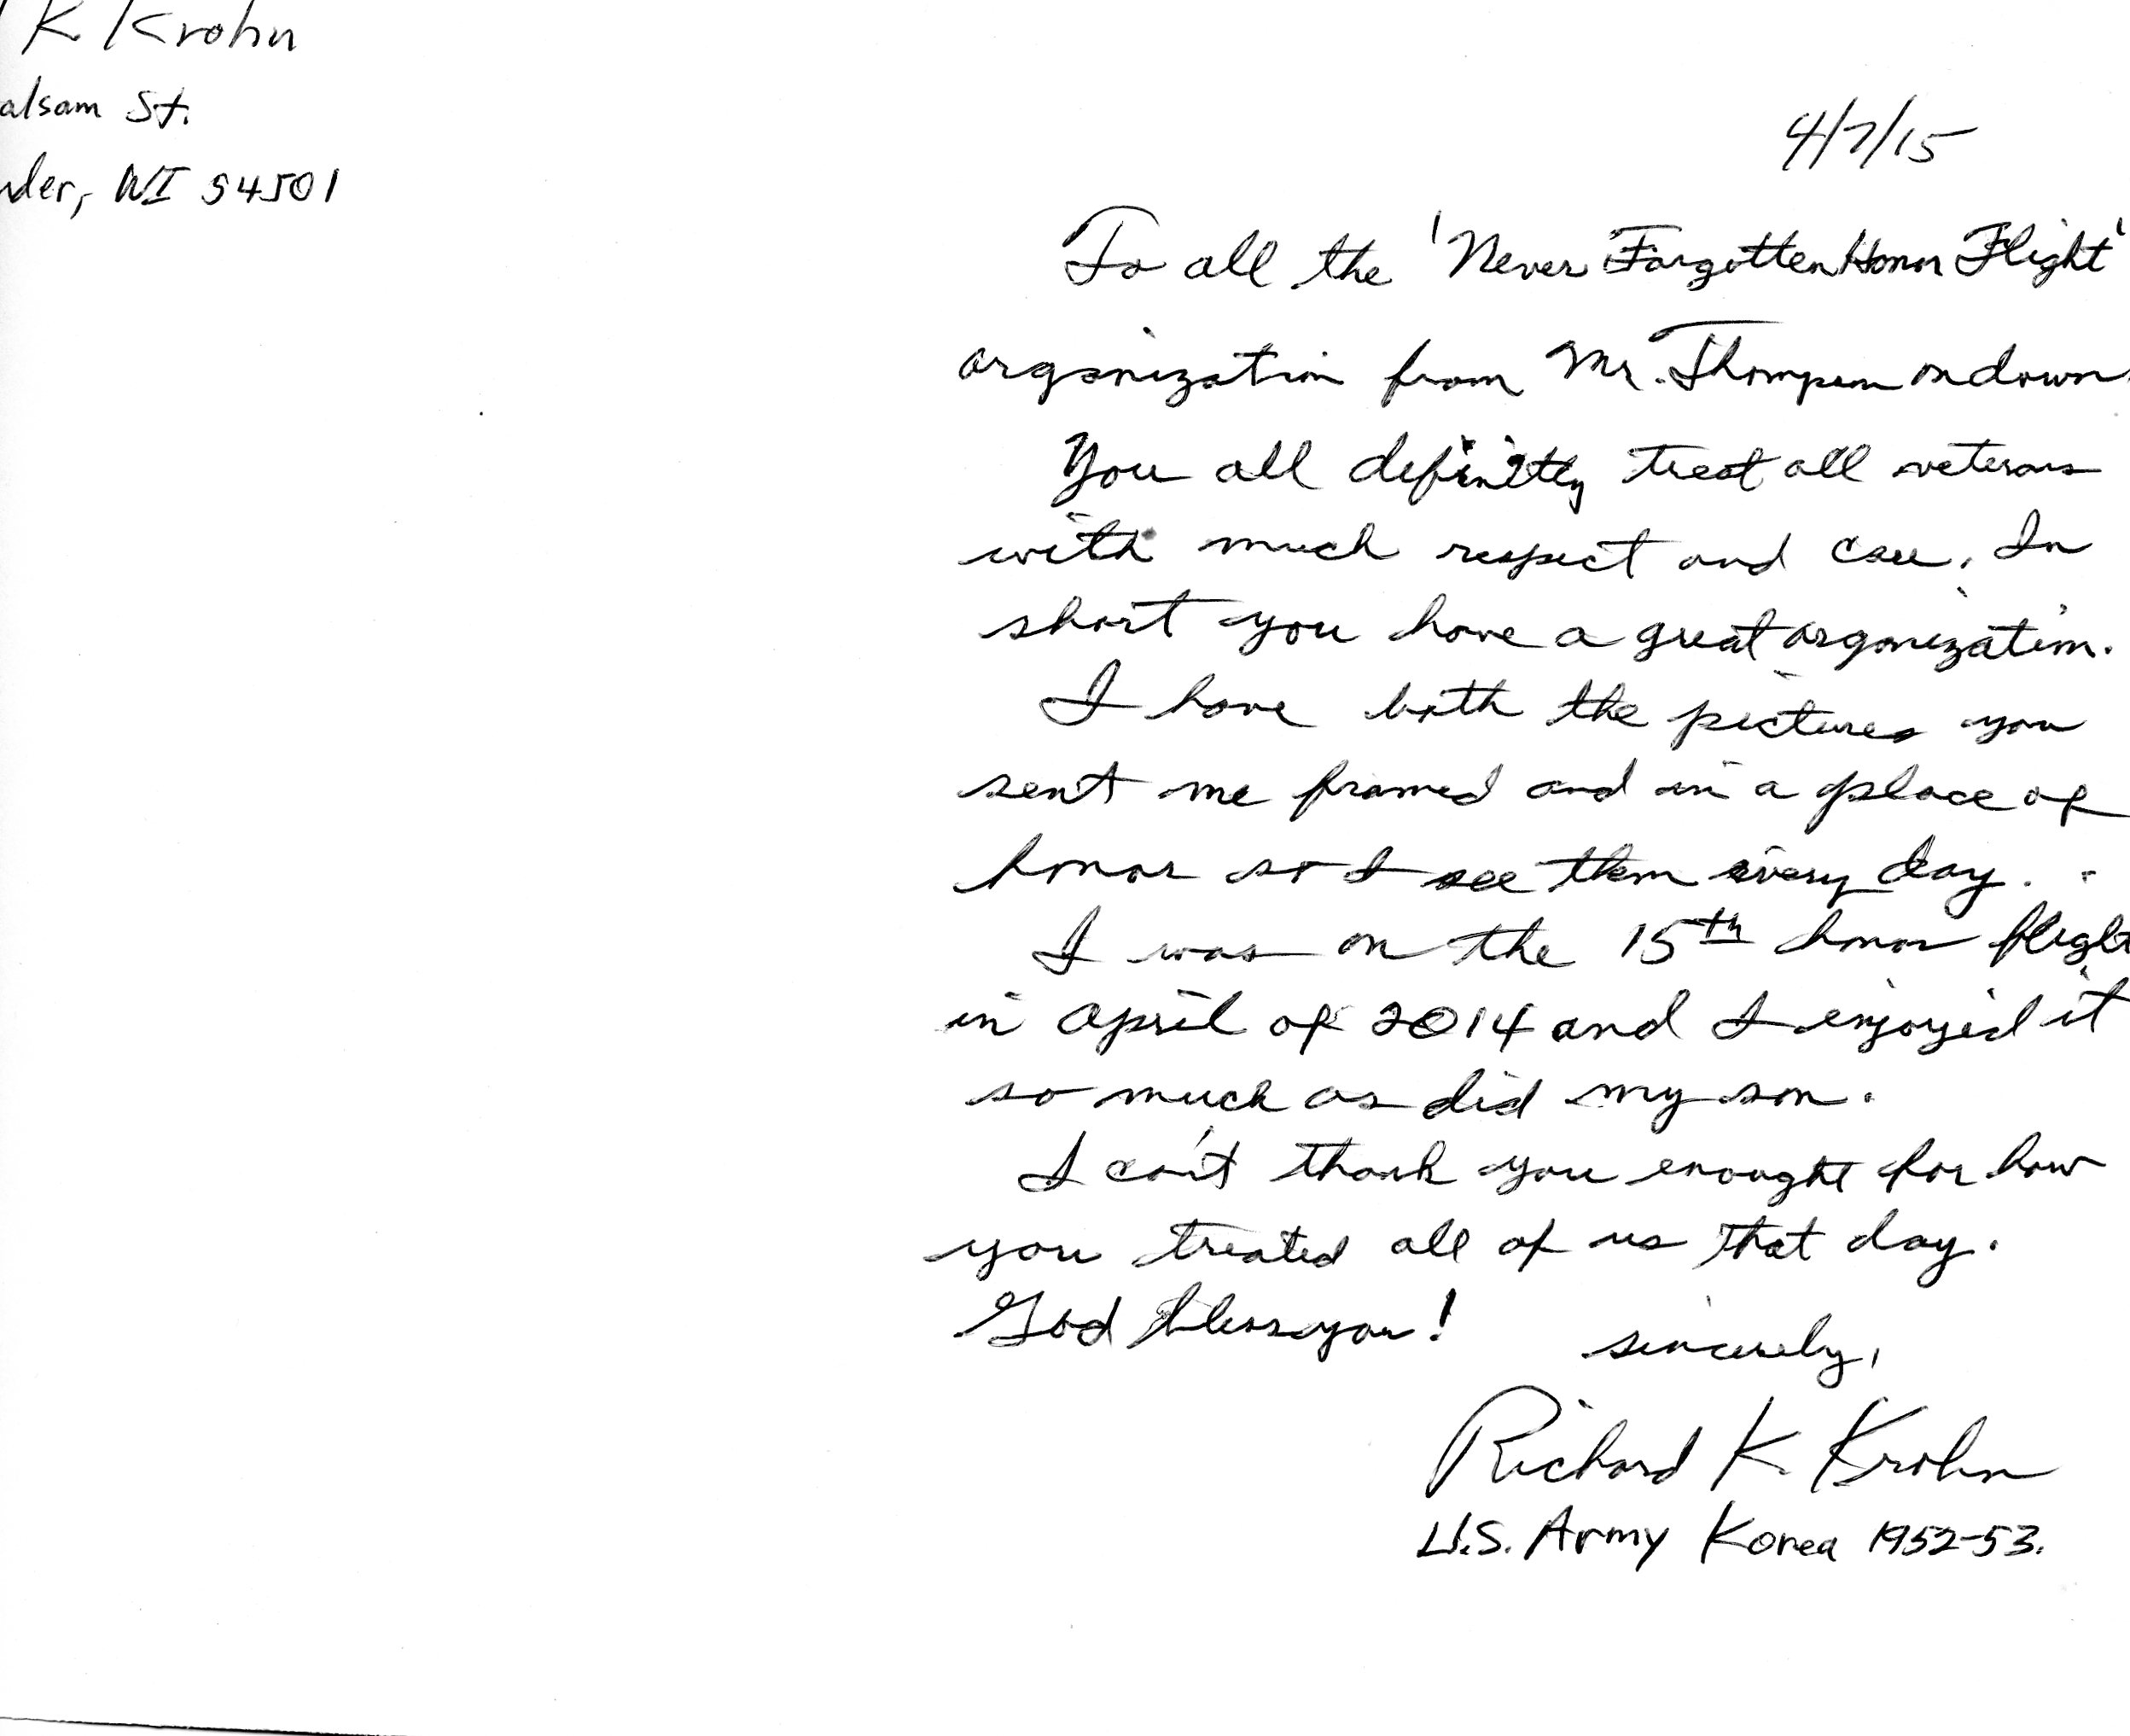 K. Krohn
alsam St.
nder, WI 54501
4/7/15
To all the 'Never Forgotten Honor Flight'
organization from Mr. Thompson on down.
You all definitly treat all veterans
with much respect and care. In
short you have a great organization.
I have both the pictures you
sent me framed and in a place of
honor so I see them every day.
I was on the 15th honor flight
in April of 2014 and I enjoyed it
so much as did my son.
I can't thank you enought for how
you treated all of us that day.
God bless you!
sincerely,
Richard K. Krohn
U.S. Army Korea 1952-53.